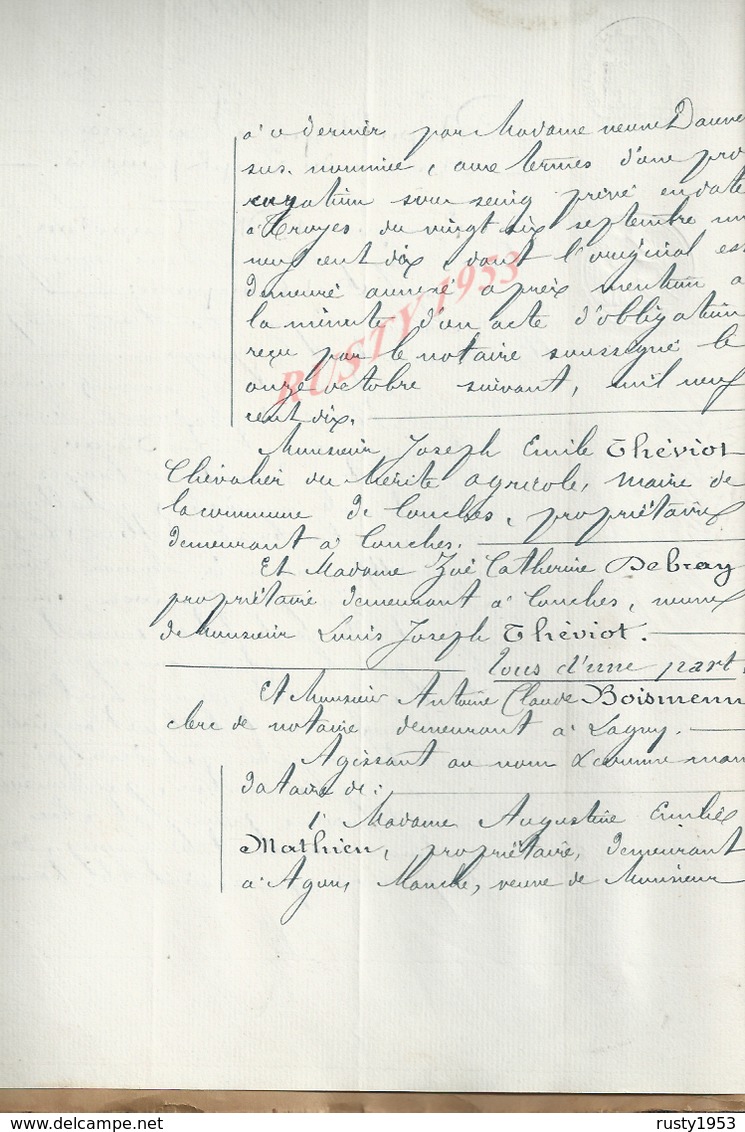 à ce dernier par Madame veuve Dauve
sus-nommée, aux termes d'une pro
curation sous seing privé en date
à Troyes du vingt six septembre mil
neuf cent dix, dont l'original est
demeuré annexé après mention à
la minute d'un acte d'obligation
reçu par le notaire soussigné le
onze octobre suivant, mil neuf
cent dix.
Monsieur Joseph Emile Théviot
Chevalier du Mérite agricole, maire de
la commune de Conches, propriétaire
demeurant à Conches.
Et Madame Zoé Catherine Debray
propriétaire demeurant à Conches, veuve
de Monsieur Louis Joseph Théviot.
Tous d'une part.
Et Monsieur Antoine Claude Boismenn
clerc de notaire demeurant à Lagny.
Agissant au nom & comme man
dataire de :
1° Madame Augustine Emilie
Mathieu, propriétaire, demeurant
à Agon, Manche, veuve de Monsieur
RUSTY 1953
delcampe.net
rusty1953